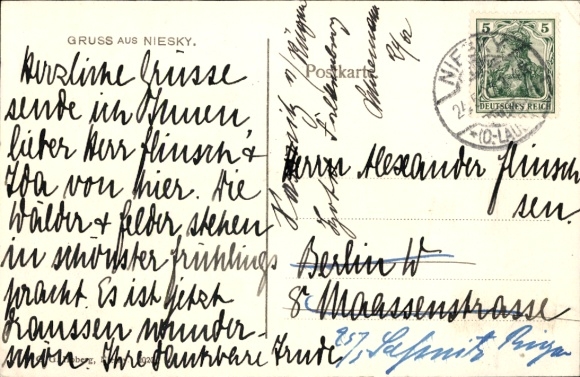 GRUSS AUS NIESKY.
Herzliche Grüsse
sende ich Ihnen
lieber Herr Flinsch &
Ida von hier. Die
Wälder & Felder stehen
in schönster Frühlings
pracht. Es ist jetzt
draussen wunder-
schön. Ihre dankbare Trude
Postkarte
5 5
DEUTSCHES REICH
NIESKY
(O.-LAU.
Herrn Alexander Flinsch
sen.
Berlin W
8 Maassenstrasse
25/ Sassnitz Rügen